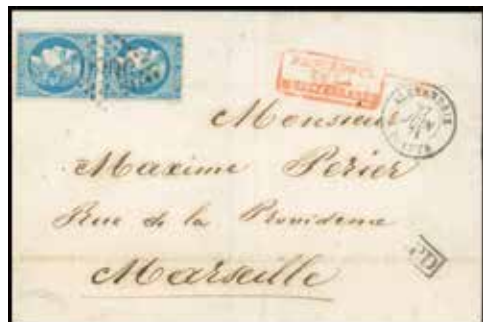 ALEXANDRIE
27
JUIN
71
Monsieur
Maxime Perier
Rue de la Providence
Marseille
PD